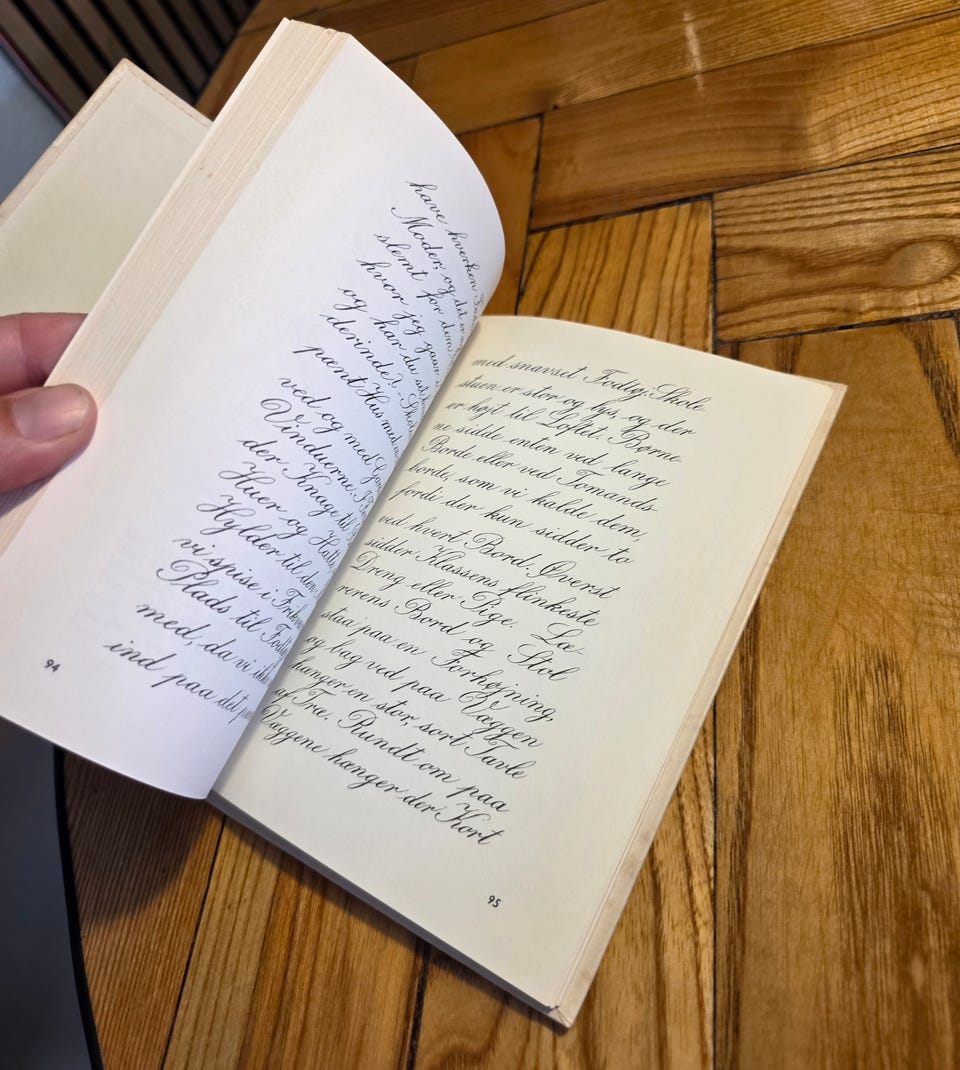 have hverken
Moder, og det er
slemt for dem
hvor jeg gaar
og har du set
derinde?
pænt Hus med
ved og med
Vinduerne.
der Knage til
Huer og Hatte,
Hylder til den
vi spise i
Plads til
med, da vi ikke
ind paa det
94
med snavset Fodtøj. Skole-
stuen er stor og lys, og der
er højt til Loftet. Børne-
ne sidde enten ved lange
Borde eller ved Tomands-
borde, som vi kalde dem,
fordi der kun sidder to
ved hvert Bord. Øverst
sidder Klassens flinkeste
Dreng eller Pige. Læ-
rerens Bord og Stol
staa paa en Forhøjning,
og bag ved paa Væggen
hænger en stor, sort Tavle
af Træ. Rundt om paa
Væggene hænger der Kort
95